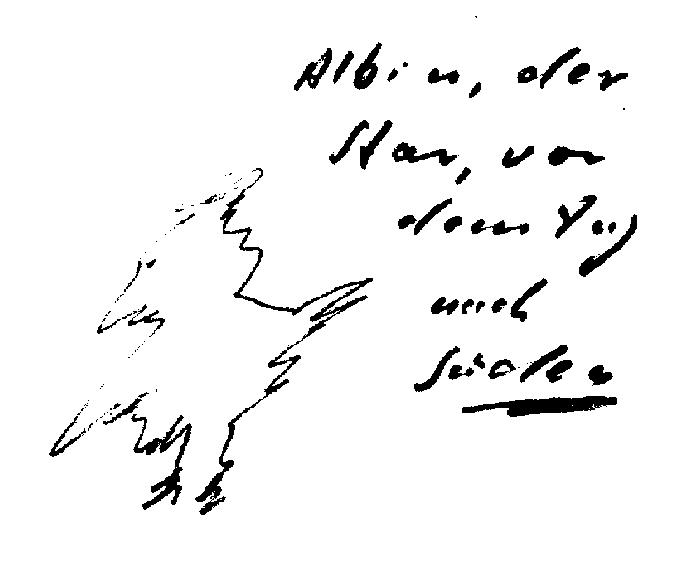 Albin, der
Star, vor
dem Zug
nach
Süden